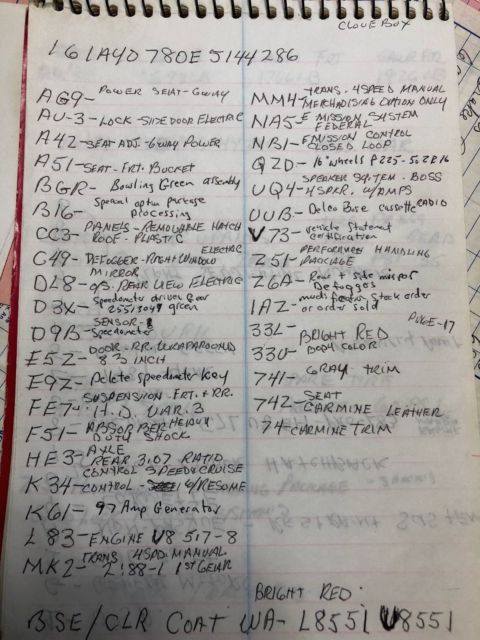 GLOVE BOX
1G1AY0780E5144286
AG9- POWER SEAT-6WAY
AU-3-LOCK-SIDE DOOR ELECTRIC
A42-SEAT ADJ-6WAY POWER
A51-SEAT-FRT. BUCKET
BGR- Bowling Green assembly
B16- Special option package
processing
CC3- PANELS-REMOVABLE HATCH
ROOF-PLASTIC
C49-DEFOGGER-RIGHT WINDOW ELECTRIC
MIRROR
DL8- O/S. REAR VIEW ELECTRIC
D3X- Speedometer driven Gear
25513049 green
D9B- SENSOR-
Speedometer
E5Z- DOOR-RR. WRAPAROUND
83 INCH
E9Z- Delete speedometer Key
FE7- SUSPENSION FRT.+RR.
H.D. VAR. 3
F51- ABSORBER HEAVY
DUTY SHOCK
HE3- AXLE
REAR 3.07 RATIO
K34- CONTROL SPEED CRUISE
CONTROL- W/RESUME
K61- 97 Amp Generator
L83-ENGINE V8 5.7-8
MK2- TRANS 4SPD. MANUAL
2.88-1 1ST GEAR
MM4- TRANS. 4SPEED MANUAL
MERCHADISING OPTION ONLY
NA5- EMISSION SYSTEM
FEDERAL
NB1- EMISSION CONTROL
CLOSED LOOP
QZD- 16" wheels P225-50ZR16
UQ4- SPEAKER SYSTEM-BOSS
4SPKR. W/AMPS
UUB- Delco Bose Cassette RADIO
V73- vehicle statement
certification
Z51- PERFORMER HANDLING
PACKAGE
Z6A- Rear + side mirror
Defogges
1AZ- multi feeder stock order
or order sold
PAGE-17
33L- BRIGHT RED
33U- BODY COLOR
741- GRAY TRIM
742- SEAT
CARMINE LEATHER
74-CARMINE TRIM
BRIGHT RED
BSE/CLR COAT WA-L8551 U8551